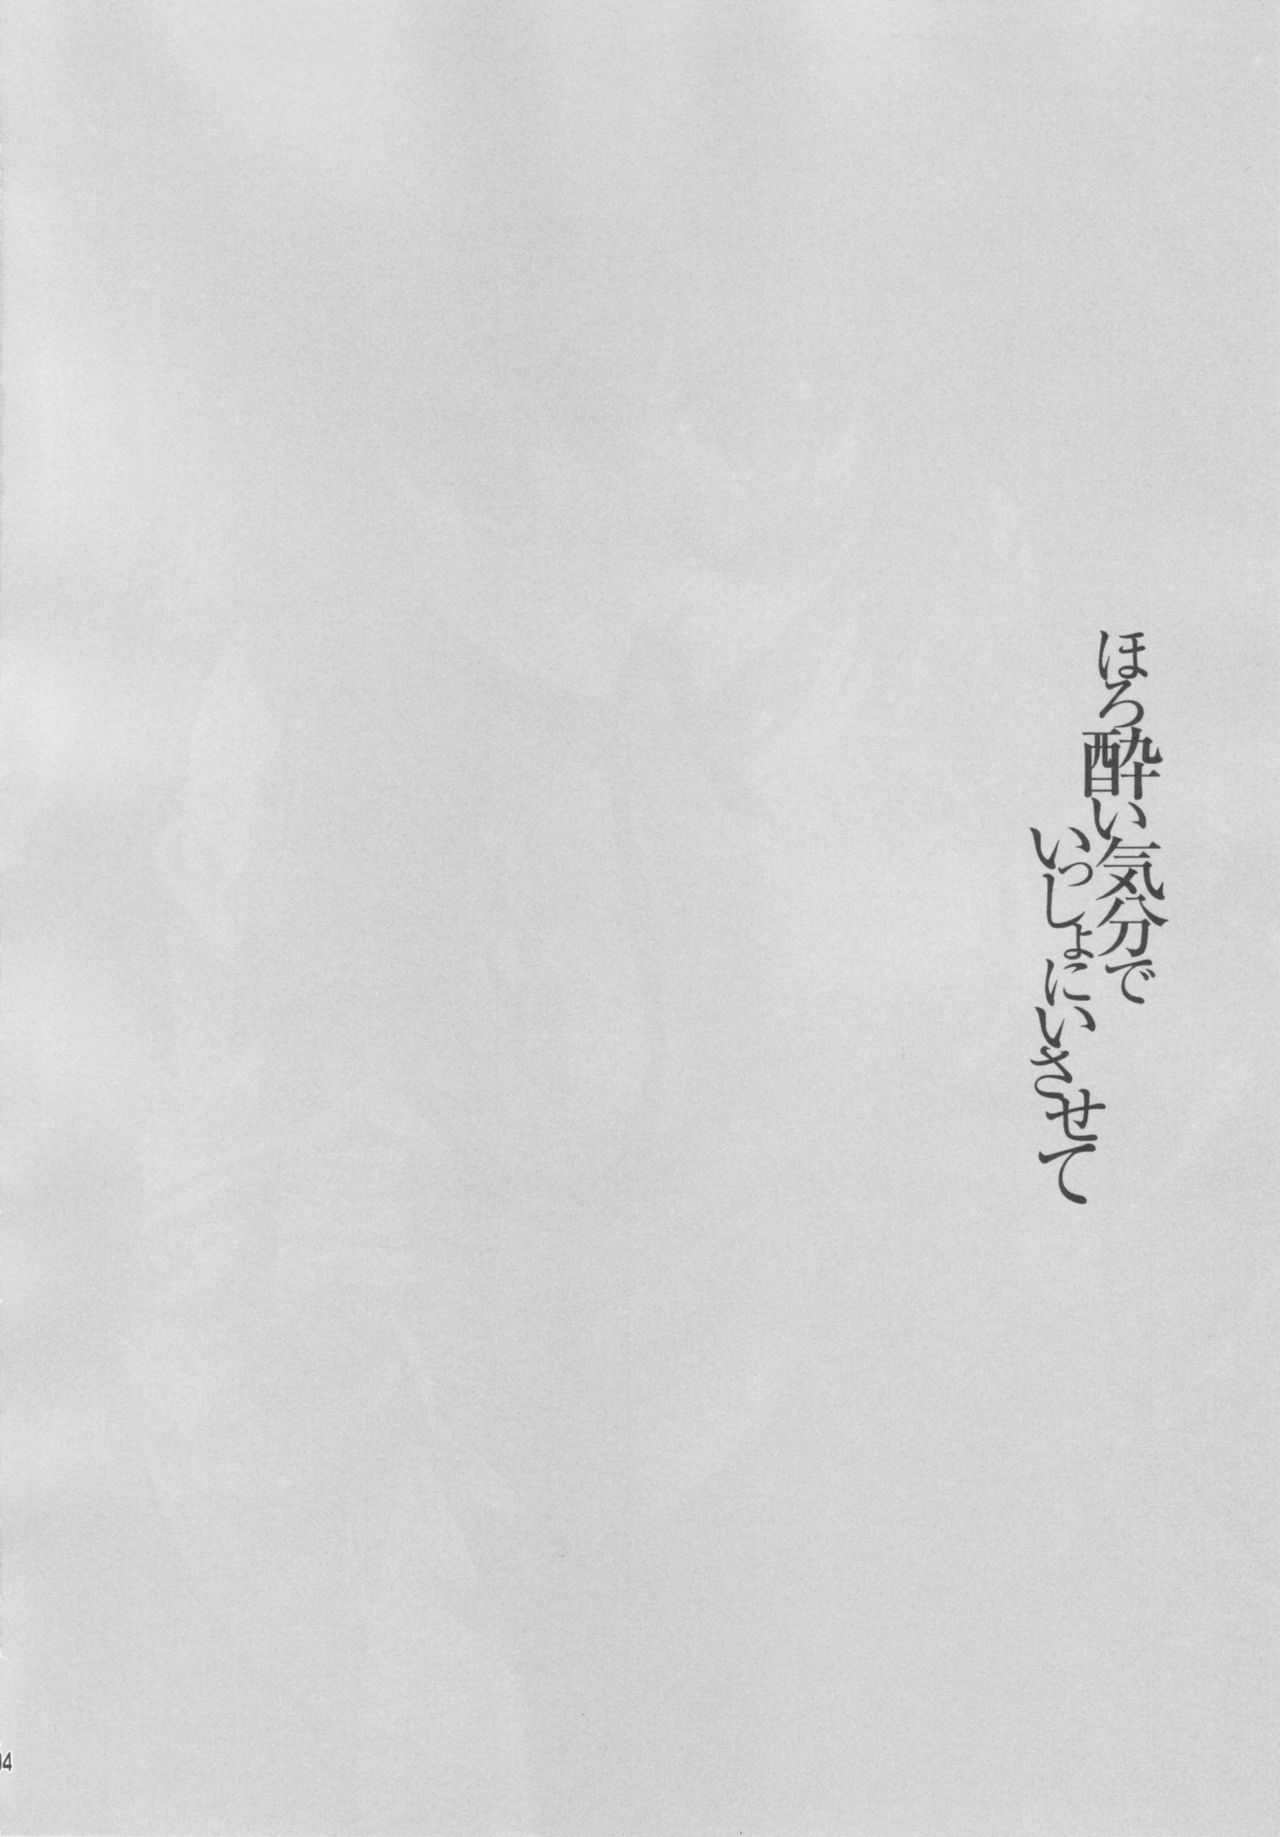 ほろ酔い気分で
いっしょにいさせて
04